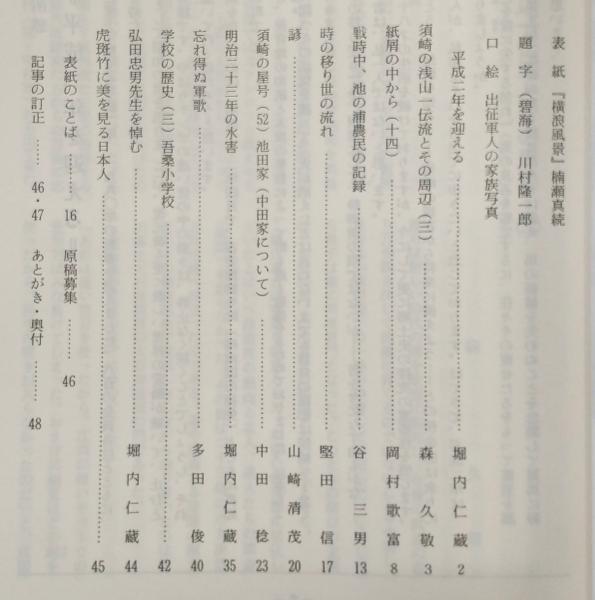 表紙『横浪風景』楠瀬真続
題字（碧海）川村隆一郎
口絵 出征軍人の家族写真
平成二年を迎える………堀内仁蔵 2
須崎の浅山一伝流とその周辺（三）………森久敬 3
紙屑の中から（十四）………岡村歌富 8
戦時中、池の浦農民の記録………谷三男 13
時の移り世の流れ………堅田信 17
諺………山崎清茂 20
須崎の屋号（52）池田家（中田家について）………中田稔 23
明治二十三年の水害………堀内仁蔵 35
忘れ得ぬ軍歌………多田俊 40
学校の歴史（三）吾桑小学校………42
弘田忠男先生を悼む………堀内仁蔵 44
虎斑竹に美を見る日本人………45
表紙のことば………16 原稿募集………46
記事の訂正……46・47 あとがき・奥付………48